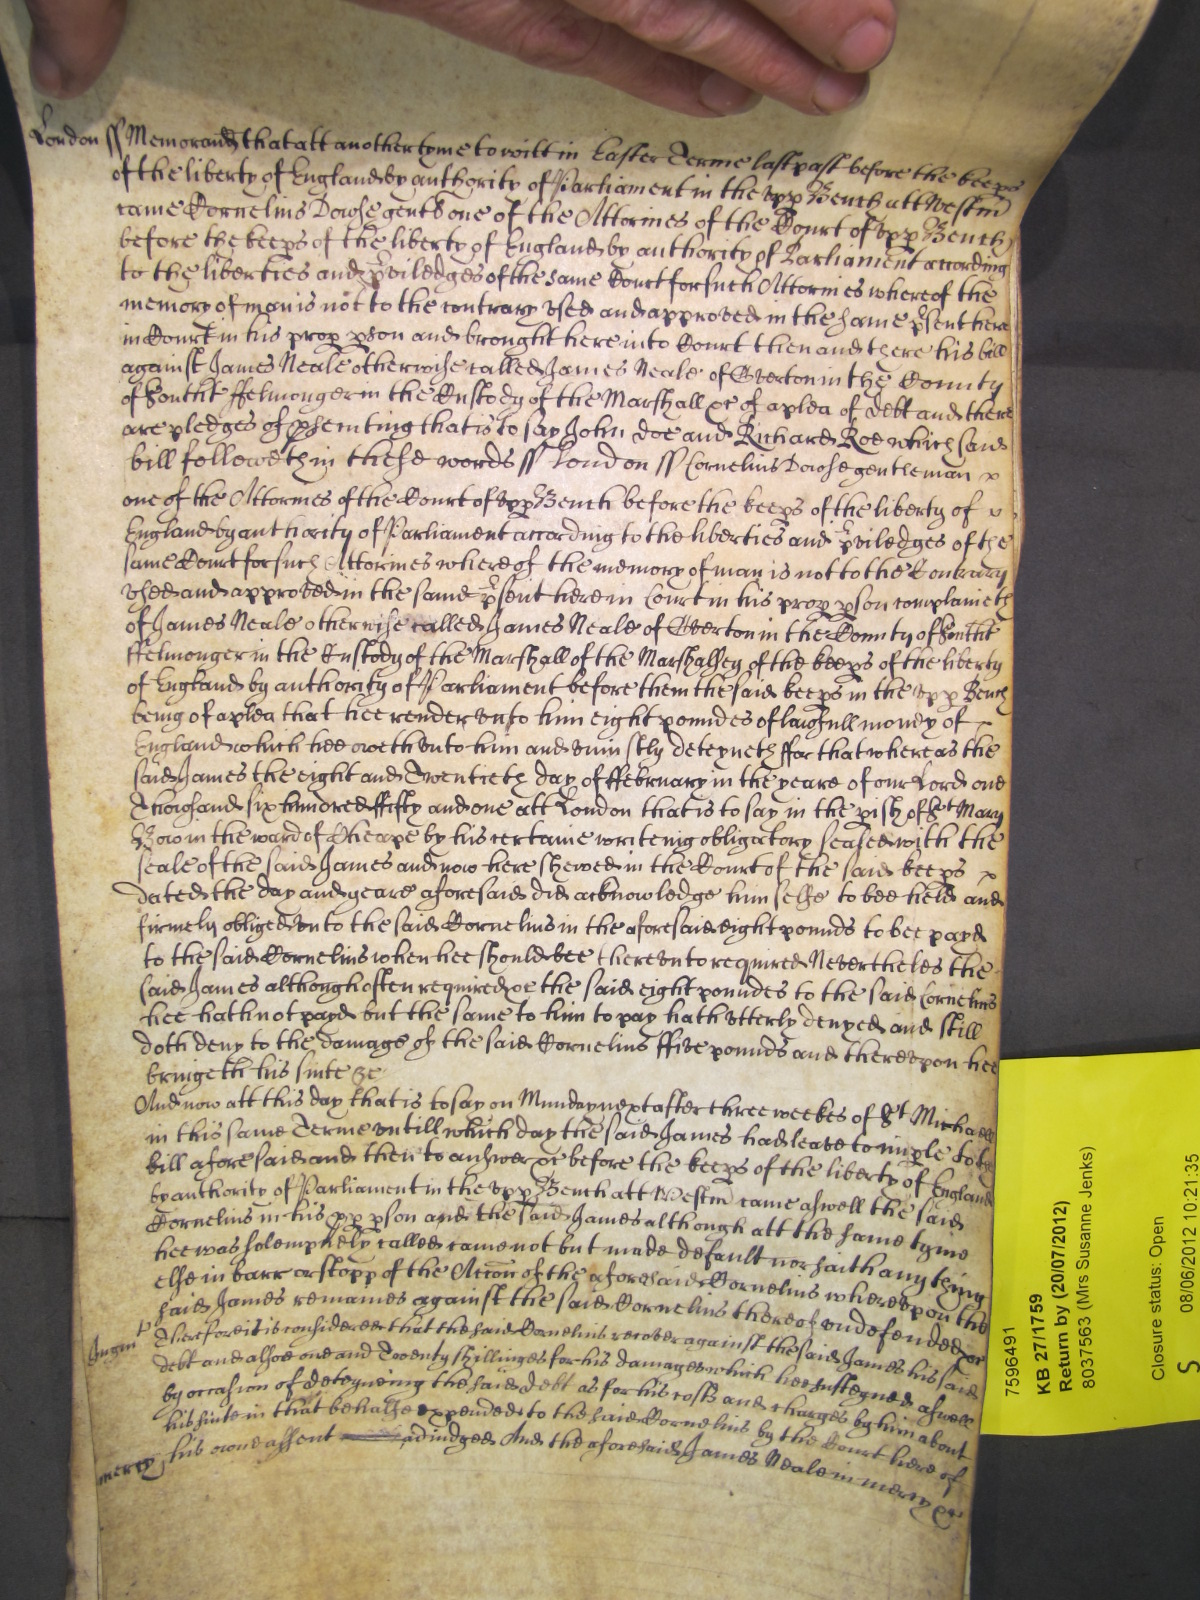 London ss Memorand that att another tyme to witt in Easter Terme last past before the keeps
of the liberty of England by authority of Parliament in the upp Bench att Westm
came Cornelius Dowse gent one of the Attornies of the Court of upp Bench
before the keeps of the liberty of England by authority of Parliament according
to the liberties and priviledges of the same Court for such Attornies whereof the
memory of man is not to the contrary used and approved in the same psent here
in Court in his prop pson and brought here into Court then and there his bill
against James Neale otherwise called James Neale of Overton in the County
of Southt ffelmonger in the Custody of the Marshall &c of a plea of debt and there
are pledges of psecuting that is to say John Doe and Richard Roe which said
bill followeth in these words ss London ss Cornelius Dowse gentleman x
one of the Attornies of the Court of upp Bench before the keeps of the liberty of x
England by authority of Parliament according to the liberties and priviledges of the
same Court for such Attornies whereof the memory of man is not to the Contrary
used and approved in the same psent here in Court in his prop pson complaineth
of James Neale otherwise called James Neale of Overton in the County of Southt
ffelmonger in the Custody of the Marshall of the Marshalsey of the keeps of the liberty
of England by authority of Parliament before them the said keeps in the upp Bench
being of a plea that hee render unto him eight poundes of lawfull money of
England which hee oweth unto him and uniustly deteyneth ffor that whereas the
said James the eight and Twentieth day of ffebruary in the yeare of our Lord one
Thowsand six hundred ffifty and one att London that is to say in the pish of St Mary
Bow in the ward of Cheape by his certaine writeing obligatory sealed with the
seale of the said James and now here shewed in the Court of the said keeps x
dated the day and yeare aforesaid did acknowledge himselfe to bee held and
firmely obliged unto the said Cornelius in the aforesaid eight pounds to bee payd
to the said Cornelius when hee should bee thereunto required Neverthelес the
said James although often required &c the said eight poundes to the said Cornelius
hee hath not payd but the same to him to pay hath utterly denyed and still
doth deny to the damage of the said Cornelius ffive pounds and thereupon hee
bringeth his suite &c
And now att this day that is to say on Munday next after three weekes of St Michaell
in this same Terme untill which day the said James had leave to imple to the
bill aforesaid and then to answer &c before the keeps of the liberty of England
by authority of Parliament in the upp Bench att Westm came aswell the said
Cornelius in his pp pson and the said James although att the same tyme
hee was solempnely called came not but made default nor saith any thing
else in barr or stopp of the Accon of the aforesaid Cornelius whereupon the
said James remaines against the said Cornelius thereof undefended &c
Jugmt Therefore it is considered that the said Cornelius recover against the said James his said
debt and alsoe one and Twenty shillinges for his damages which hee susteyned aswell
by occasion of deteyneing the said debt as for his costs and charges by him about
his suite in that behalfe expended to the said Cornelius by the Court here of
mercy his owne assent adiudged And the aforesaid James Neale in mercy &c
7596491
KB 27/1759
Return by (20/07/2012)
8037563 (Mrs Susanne Jenks)
Closure status: Open
S 08/06/2012 10:21:35